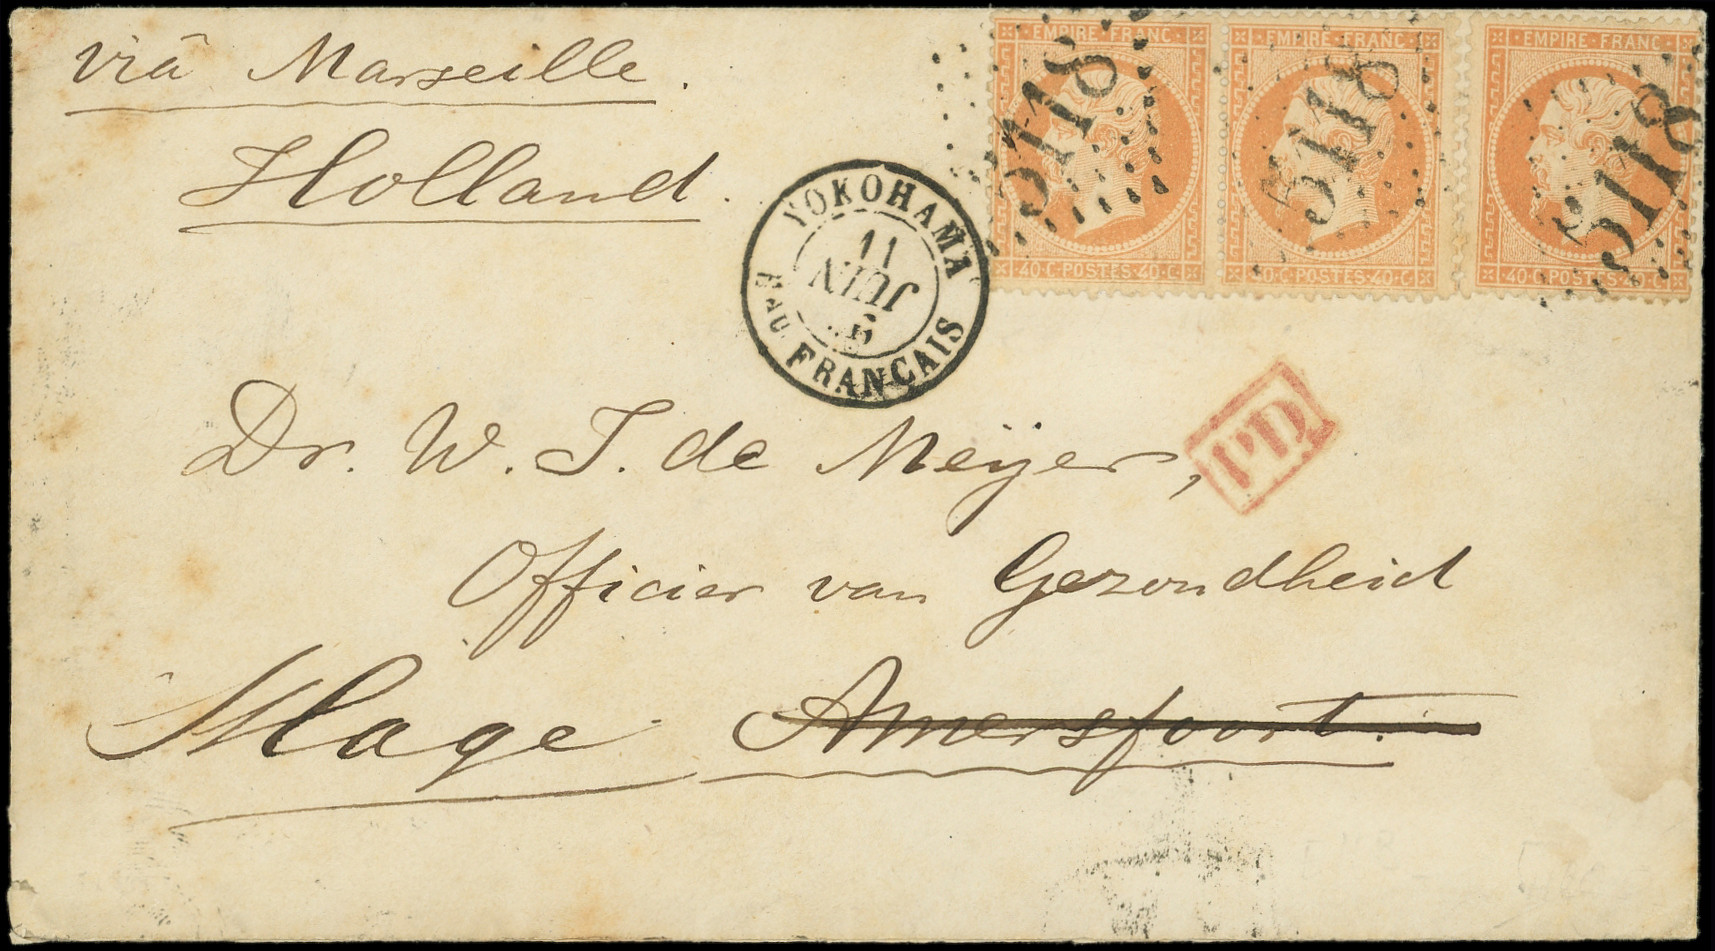 viâ Marseille.
Holland.
EMPIRE FRANC
5118
40·C·POSTES·40·C
EMPIRE FRANC
5118
40·C·POSTES·40·C
EMPIRE FRANC
5118
40·C·POSTES·40·C
YOKOHAMA
11
JUIN
Bau FRANCAIS
P.D.
Dr. W. J. de Meijer,
Officier van Gezondheid
Hage Amersfoort.